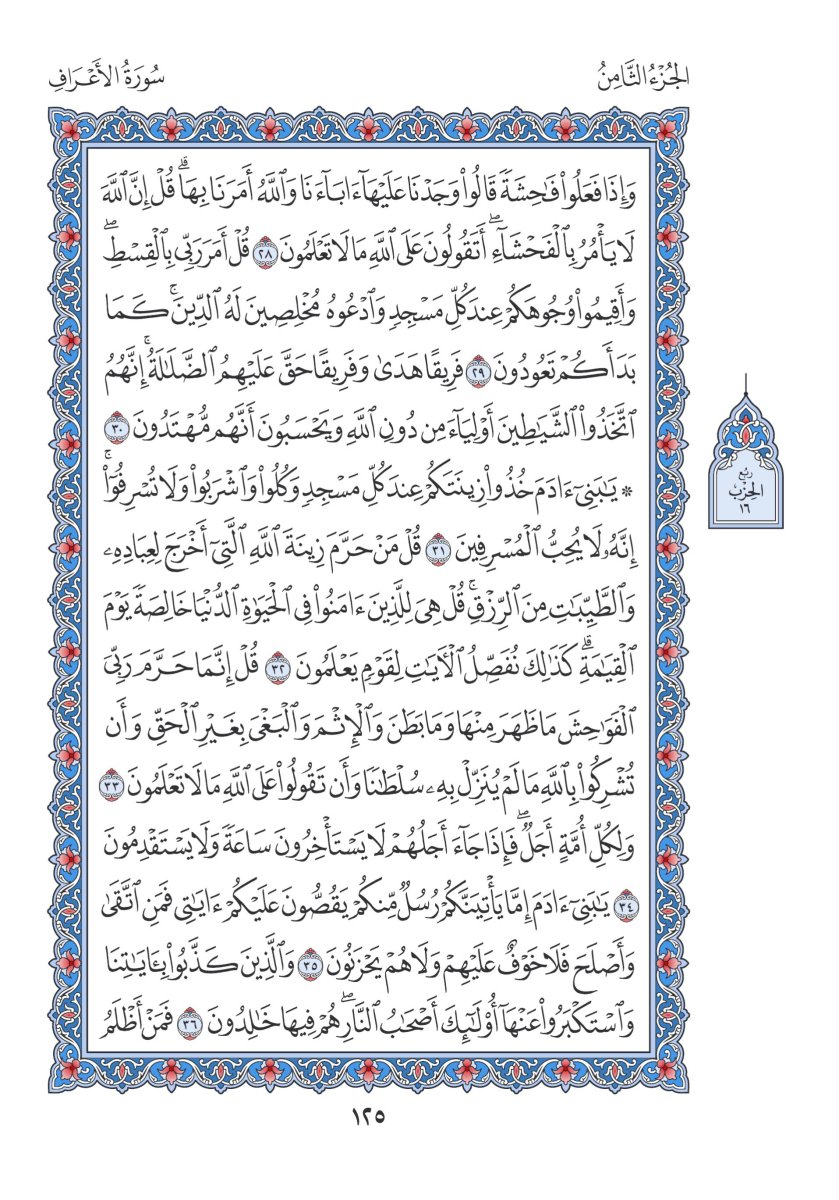 الجُزْءُ الثَّامِنُ
سُورَةُ الأَعْرَافِ
وَإِذَا فَعَلُواْ فَٰحِشَةٗ قَالُواْ وَجَدۡنَا عَلَيۡهَآ ءَابَآءَنَا وَٱللَّهُ أَمَرَنَا بِهَاۗ قُلۡ إِنَّ ٱللَّهَ
لَا يَأۡمُرُ بِٱلۡفَحۡشَآءِۖ أَتَقُولُونَ عَلَى ٱللَّهِ مَا لَا تَعۡلَمُونَ ٢٨ قُلۡ أَمَرَ رَبِّي بِٱلۡقِسۡطِۖ
وَأَقِيمُواْ وُجُوهَكُمۡ عِندَ كُلِّ مَسۡجِدٖ وَٱدۡعُوهُ مُخۡلِصِينَ لَهُ ٱلدِّينَۚ كَمَا
بَدَأَكُمۡ تَعُودُونَ ٢٩ فَرِيقًا هَدَىٰ وَفَرِيقًا حَقَّ عَلَيۡهِمُ ٱلضَّلَٰلَةُۚ إِنَّهُمُ
ٱتَّخَذُواْ ٱلشَّيَٰطِينَ أَوۡلِيَآءَ مِن دُونِ ٱللَّهِ وَيَحۡسَبُونَ أَنَّهُم مُّهۡتَدُونَ ٣٠
۞ يَٰبَنِيٓ ءَادَمَ خُذُواْ زِينَتَكُمۡ عِندَ كُلِّ مَسۡجِدٖ وَكُلُواْ وَٱشۡرَبُواْ وَلَا تُسۡرِفُوٓاْۚ
إِنَّهُۥ لَا يُحِبُّ ٱلۡمُسۡرِفِينَ ٣١ قُلۡ مَنۡ حَرَّمَ زِينَةَ ٱللَّهِ ٱلَّتِيٓ أَخۡرَجَ لِعِبَادِهِۦ
وَٱلطَّيِّبَٰتِ مِنَ ٱلرِّزۡقِۚ قُلۡ هِيَ لِلَّذِينَ ءَامَنُواْ فِي ٱلۡحَيَوٰةِ ٱلدُّنۡيَا خَالِصَةٗ يَوۡمَ
ٱلۡقِيَٰمَةِۗ كَذَٰلِكَ نُفَصِّلُ ٱلۡأٓيَٰتِ لِقَوۡمٖ يَعۡلَمُونَ ٣٢ قُلۡ إِنَّمَا حَرَّمَ رَبِّيَ
ٱلۡفَوَٰحِشَ مَا ظَهَرَ مِنۡهَا وَمَا بَطَنَ وَٱلۡإِثۡمَ وَٱلۡبَغۡيَ بِغَيۡرِ ٱلۡحَقِّ وَأَن
تُشۡرِكُواْ بِٱللَّهِ مَا لَمۡ يُنَزِّلۡ بِهِۦ سُلۡطَٰنٗا وَأَن تَقُولُواْ عَلَى ٱللَّهِ مَا لَا تَعۡلَمُونَ ٣٣
وَلِكُلِّ أُمَّةٍ أَجَلٞۖ فَإِذَا جَآءَ أَجَلُهُمۡ لَا يَسۡتَأۡخِرُونَ سَاعَةٗ وَلَا يَسۡتَقۡدِمُونَ
٣٤ يَٰبَنِيٓ ءَادَمَ إِمَّا يَأۡتِيَنَّكُمۡ رُسُلٞ مِّنكُمۡ يَقُصُّونَ عَلَيۡكُمۡ ءَايَٰتِي فَمَنِ ٱتَّقَىٰ
وَأَصۡلَحَ فَلَا خَوۡفٌ عَلَيۡهِمۡ وَلَا هُمۡ يَحۡزَنُونَ ٣٥ وَٱلَّذِينَ كَذَّبُواْ بِـَٔايَٰتِنَا
وَٱسۡتَكۡبَرُواْ عَنۡهَآ أُوْلَٰٓئِكَ أَصۡحَٰبُ ٱلنَّارِۖ هُمۡ فِيهَا خَٰلِدُونَ ٣٦ فَمَنۡ أَظۡلَمُ
ربع
الحِزْب
١٦
١٢٥